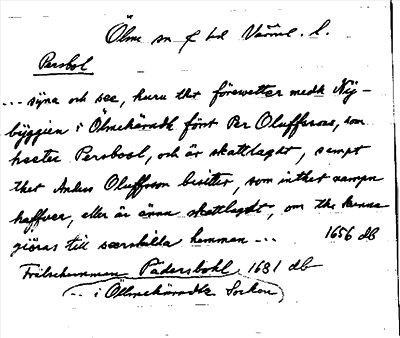 Ölme sn f hd Värml. l.
Persbol
... syna och see, huru thet förewetter medh Nÿ-
bÿggien i Ölmehäradh först Per Olufssons, som
heeter Persbool, och är skattlaght, sampt
thet Anders Oluffsson besitter, som inthet nampn
haffver, eller är ännu skattlaght, om the kunna
giöras till serskilla hemman --- 1656 db
Frälsehemman Pädersbohl 1681 db
-- i Öllmehäradz Sochen